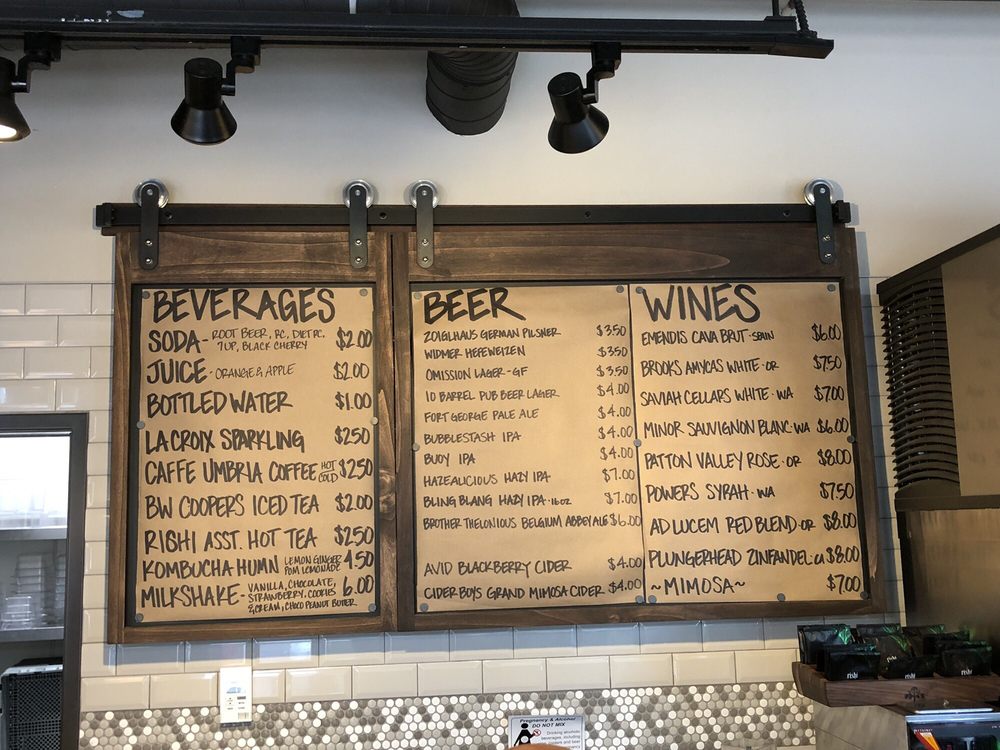 BEVERAGES
SODA- ROOT BEER, RC, DIET RC, $2.00
7UP, BLACK CHERRY
JUICE - ORANGE & APPLE $2.00
BOTTLED WATER $1.00
LA CROIX SPARKLING $250
CAFFE UMBRIA COFFEE HOT COLD $250
BW COOPERS ICED TEA $2.00
RISHI ASST. HOT TEA $250
KOMBUCHA HUMN LEMON GINGER 4.50
POM LEMONADE
MILKSHAKE- VANILLA, CHOCOLATE, 6.00
STRAWBERRY, COOKIES
& CREAM, CHOCO PEANUT BUTTER
BEER
ZOIGLHAUS GERMAN PILSNER $3.50
WIDMER HEFEWEIZEN $350
OMISSION LAGER-GF $3.50
10 BARREL PUB BEER LAGER $4.00
FORT GEORGE PALE ALE $4.00
BUBBLESTASH IPA $4.00
BUOY IPA $4.00
HAZEALICIOUS HAZY IPA $7.00
BLING BLANG HAZY IPA · 16OZ $7.00
BROTHER THELONIOUS BELGIUM ABBEY ALE $6.00
AVID BLACKBERRY CIDER $4.00
CIDERBOYS GRAND MIMOSA CIDER $4.00
WINES
EMENDIS CAVA BRUT · SPAIN $6.00
BROOKS AMYCAS WHITE · OR $7.50
SAVIAH CELLARS WHITE · WA $7.00
MINOR SAUVIGNON BLANC · WA $6.00
PATTON VALLEY ROSE · OR $8.00
POWERS SYRAH · WA $7.50
AD LUCEM RED BLEND · OR $8.00
PLUNGERHEAD ZINFANDEL · CA $8.00
~MIMOSA~ $7.00
rishi
Pregnancy & Alcohol
DO NOT MIX
Drinking alcoholic
beverages, including